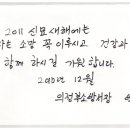 2011 신묘새해에는
소망 꼭 이루시고 건강과
함께 하시길 기원합니다.
2010년 12월
의정부소방서장